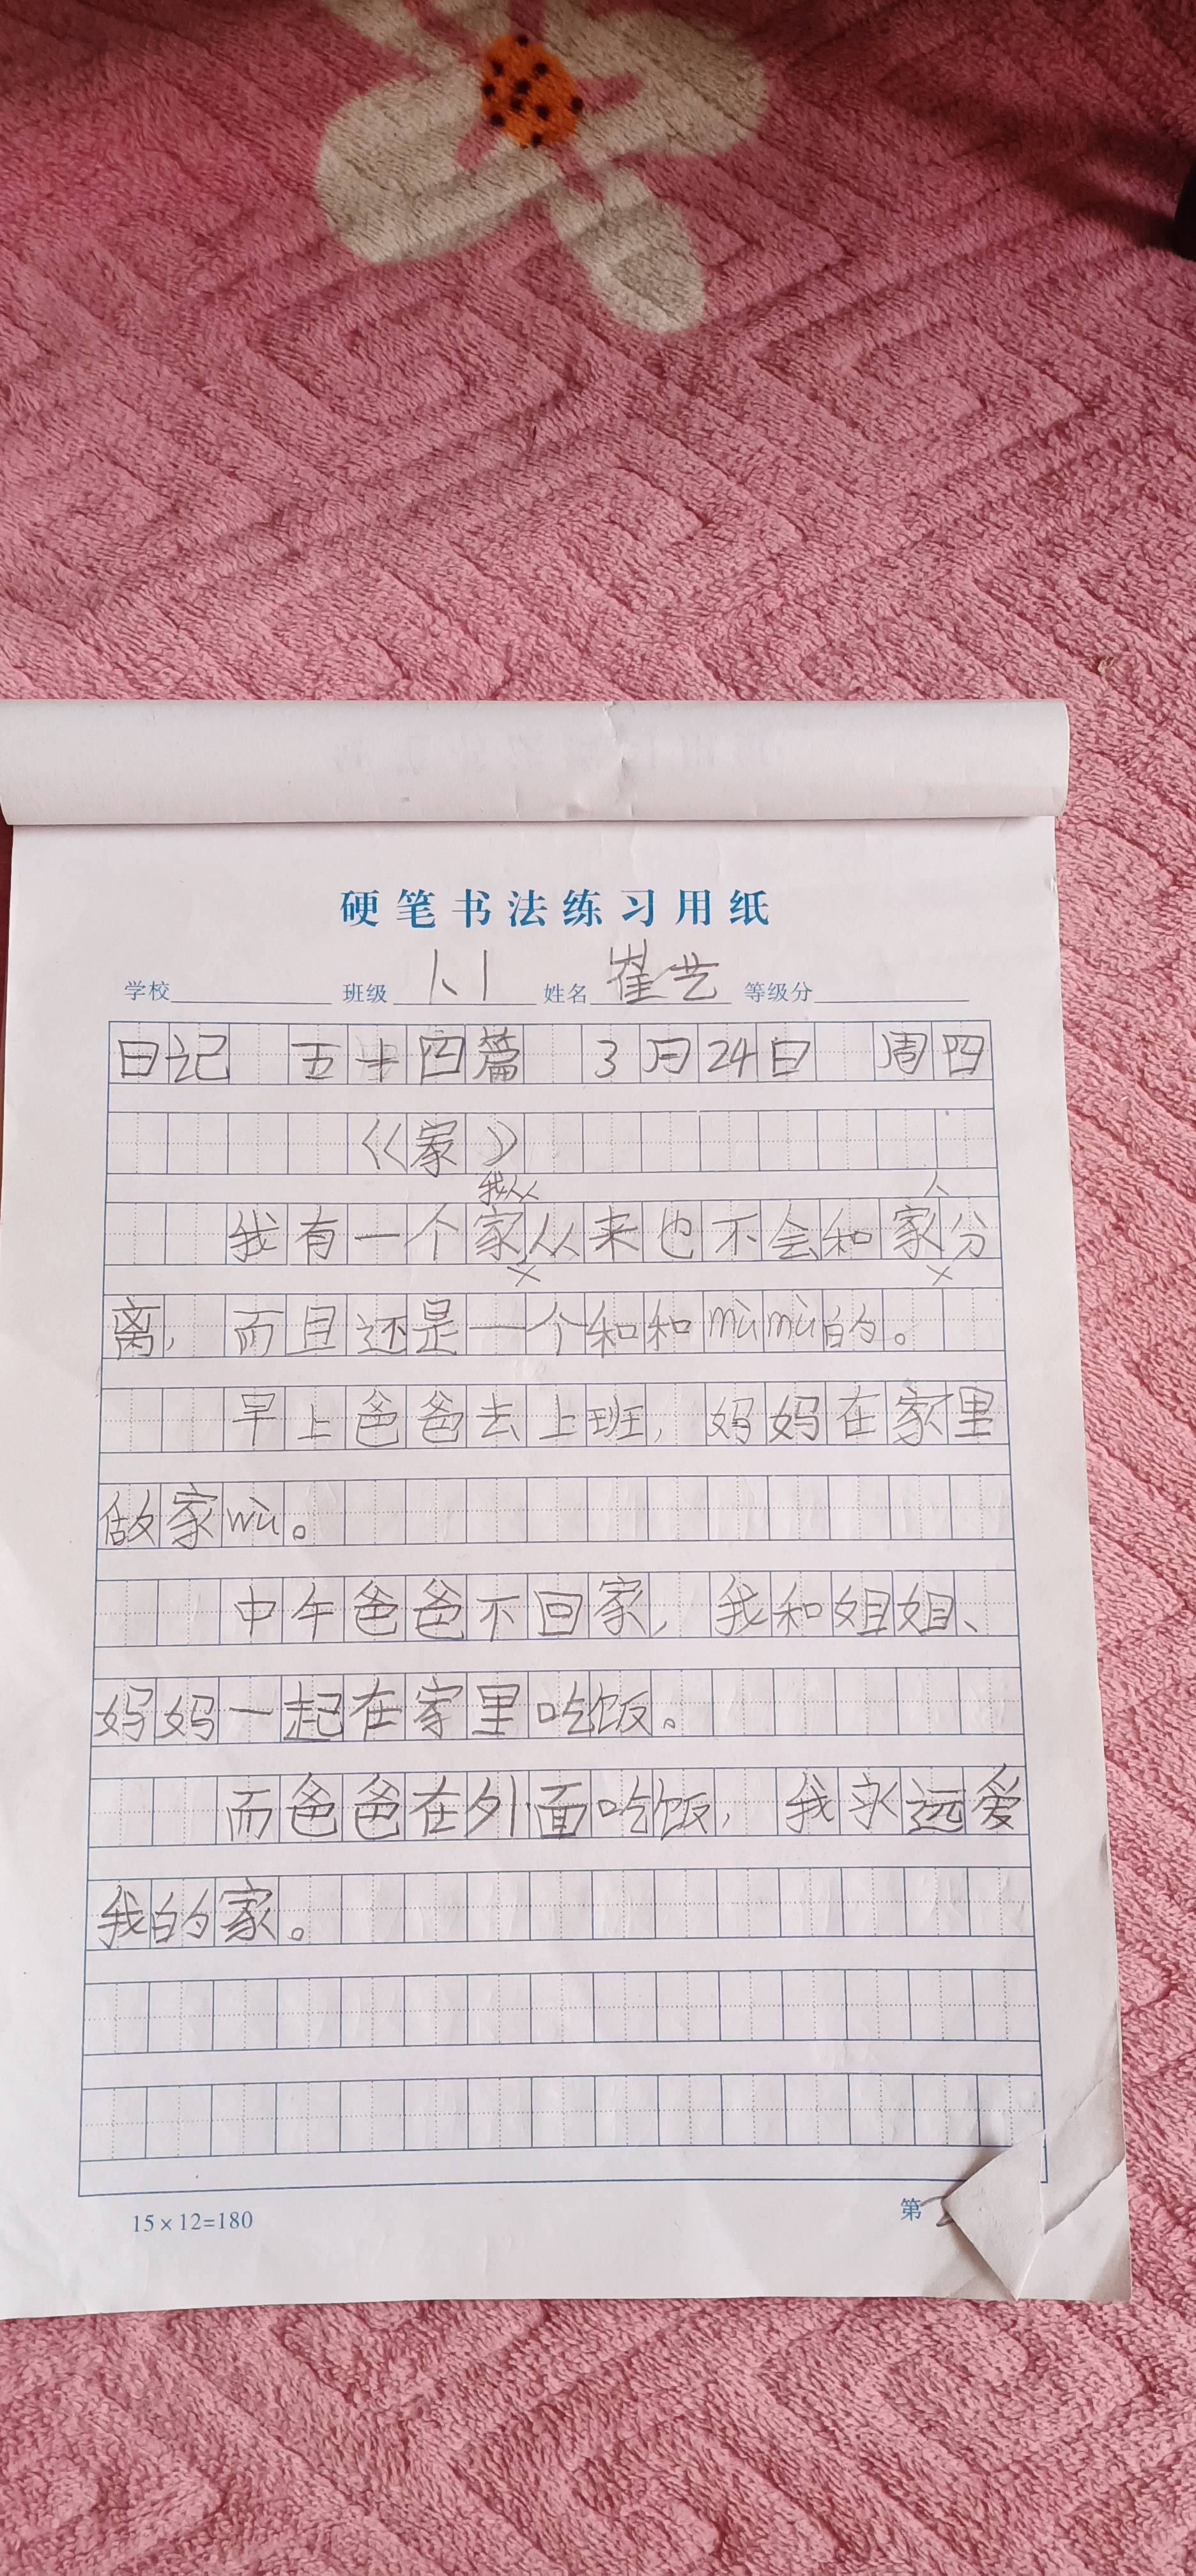 硬笔书法练习用纸
学校 班级 1、1 姓名 崔艺 等级分
日记 五十四篇 3月24日 周四
《家》
我从 人
我有一个家从来也不会和家分
离，而且还是一个和和mùmù的。
早上爸爸去上班，妈妈在家里
做家wù。
中午爸爸不回家，我和姐姐、
妈妈一起在家里吃饭。
而爸爸在外面吃饭，我永远爱
我的家。
15×12=180
第